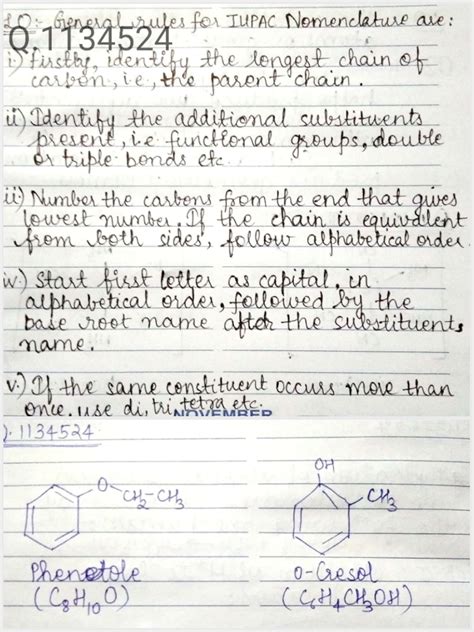 LO:- General rules for IUPAC Nomenclature are:
Q.1134524
i) firstly, identify the longest chain of
carbon, i.e, the parent chain.
ii) Identify the additional substituents
present, i.e functional groups, double
or triple bonds etc.
iii) Number the carbons from the end that gives
lowest number. If the chain is equivalent
from both sides, follow alphabetical order.
iv) Start first letter as capital, in
alphabetical order, followed by the
base root name after the substituents
name.
v.) If the same constituent occurs more than
once, use di, tri, tetra etc.
NOVEMBER
1134524
O
CH2-CH3
OH
CH3
Phenetole
(C8H10O)
O-Cresol
(C6H4CH3OH)